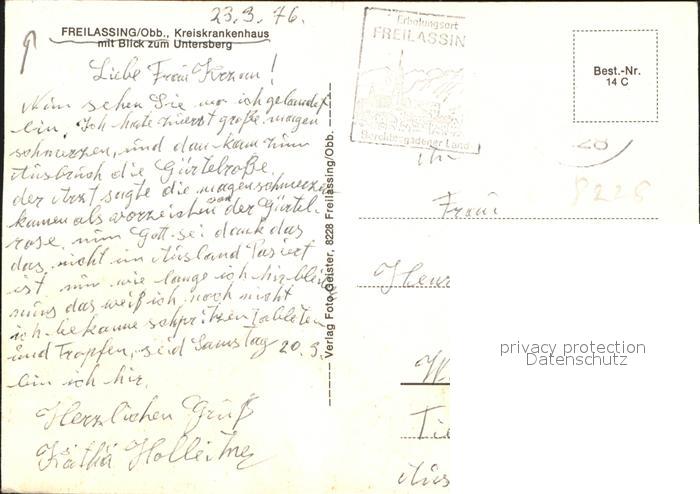 23.3.76.
FREILASSING/Obb., Kreiskrankenhaus
mit Blick zum Untersberg
Liebe Frau
Nun sehen Sie wo ich gelandet
bin, Ich hate zuerst große magen
schmerzen, und dan kam zum
Ausbruch die Gürtelroße.
der Arzt sagte die magenschmerzen
kamen als vorzeichen von der Gürtel-
rose, nun Gott sei dank das
das nicht im Ausland Pasiert
ist nur wie lange ich hir bleiben
mus das weiß ich noch nicht
ich bekome schpritzen Tableten
und Tropfen, seid Samstag 20.3.
bin ich hir.
Herzlichen Gruß
Käthä Holleitner
Verlag Foto Geister, 8228 Freilassing/Obb.
Erholungsort
FREILASSIN
Berchtesgadener Land
Best.-Nr.
14 C
28
8228
Frau
privacy protection
Datenschutz